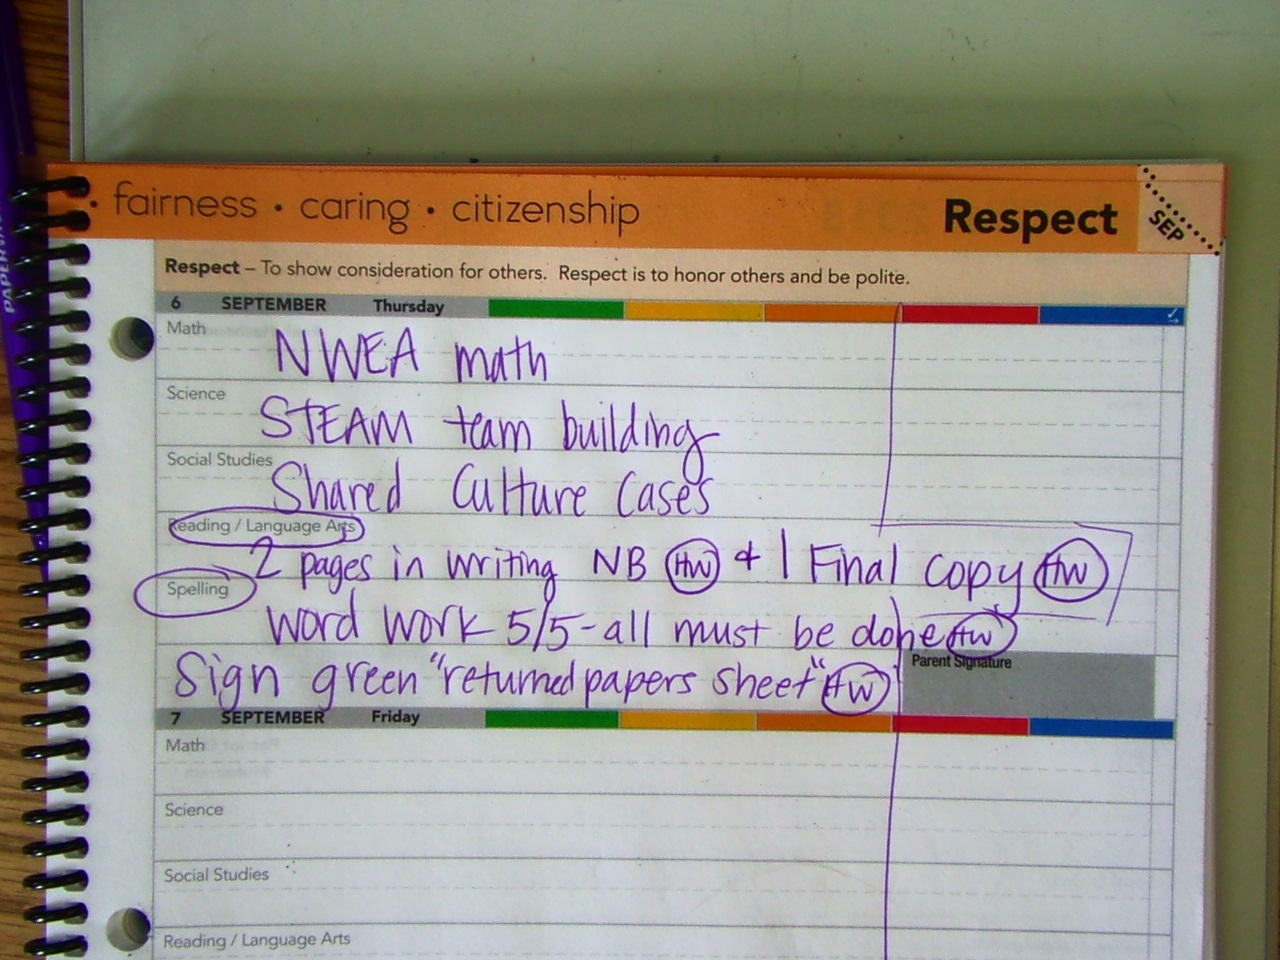 fairness • caring • citizenship Respect SEP
Respect – To show consideration for others. Respect is to honor others and be polite.
6 SEPTEMBER Thursday
Math
NWEA math
Science
STEAM team building
Social Studies
Shared Culture Cases
Reading / Language Arts
2 pages in writing NB HW + 1 Final copy HW
Spelling
Word Work 5/5-all must be done HW
Sign green "returned papers sheet" HW
Parent Signature
7 SEPTEMBER Friday
Math
Science
Social Studies
Reading / Language Arts